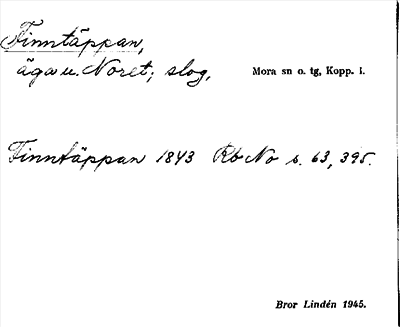 Finntäppan,
äga u. Noret; slog.
Mora sn o. tg, Kopp. l.
Finntäppan 1843 Rb No s. 63, 395.
Bror Lindén 1945.